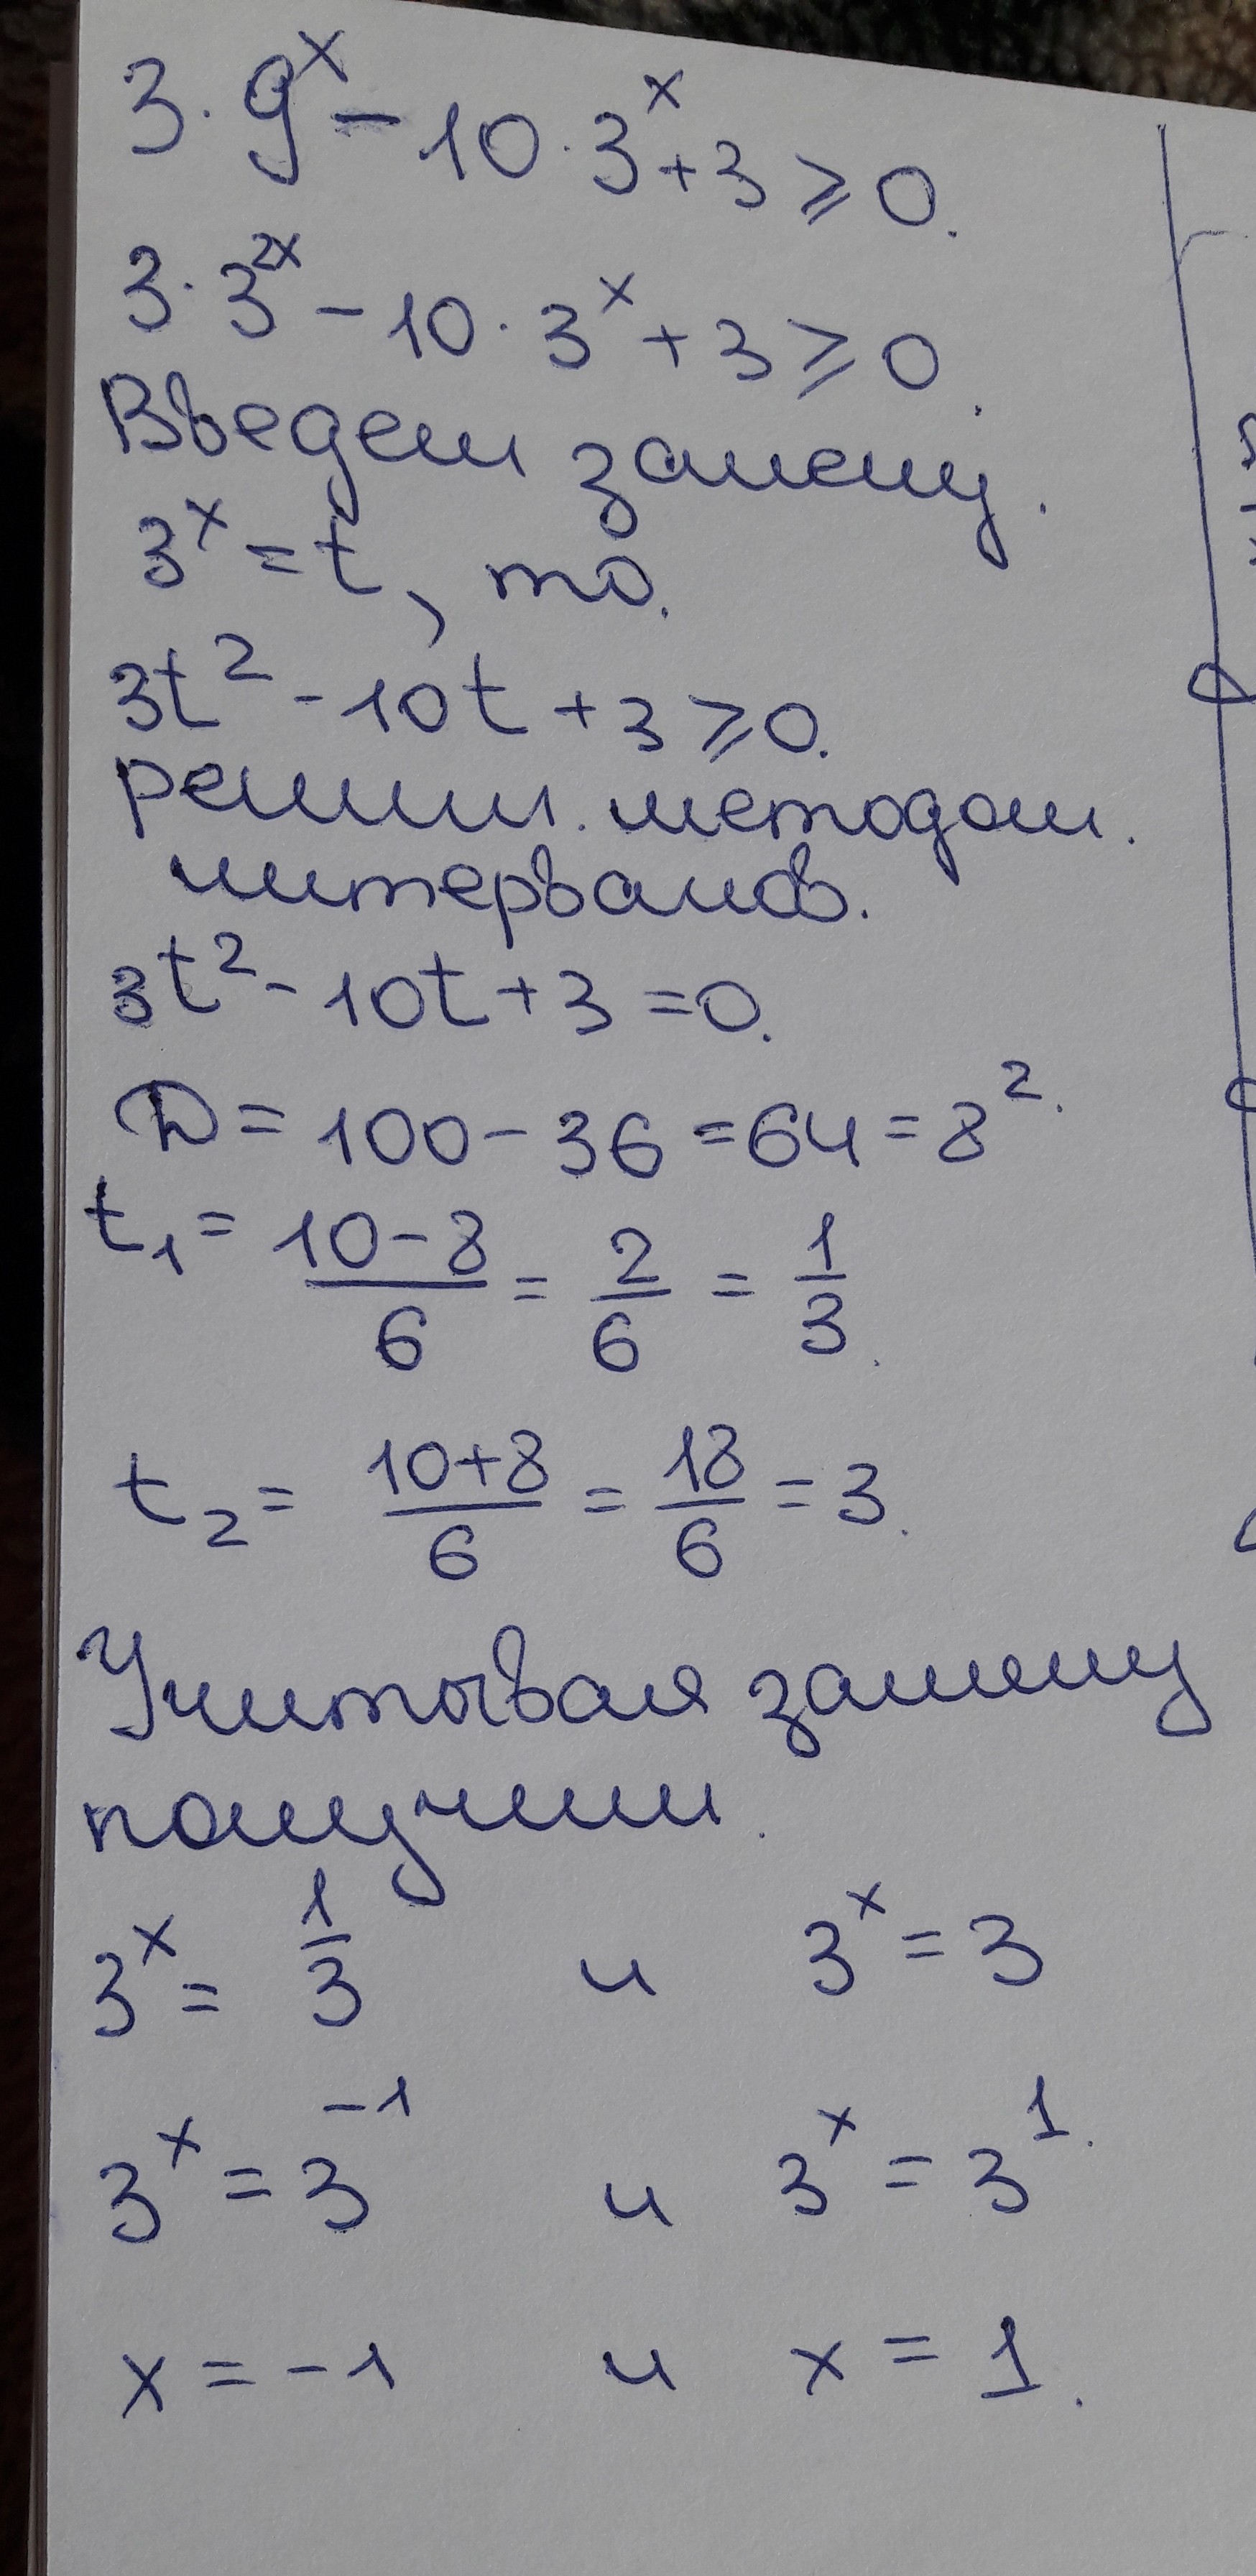 3 · 9ˣ - 10 · 3ˣ + 3 ⩾ 0.
3 · 3²ˣ - 10 · 3ˣ + 3 ⩾ 0.
Введем замену.
3ˣ = t, то.
3t² - 10t + 3 ⩾ 0.
решим. методом.
интервалов.
3t² - 10t + 3 = 0.
D = 100 - 36 = 64 = 8².
t₁ = (10-8)/6 = 2/6 = 1/3.
t₂ = (10+8)/6 = 18/6 = 3.
Учитывая замену
получим.
3ˣ = 1/3 и 3ˣ = 3
3ˣ = 3⁻¹ и 3ˣ = 3¹.
x = -1 и x = 1.